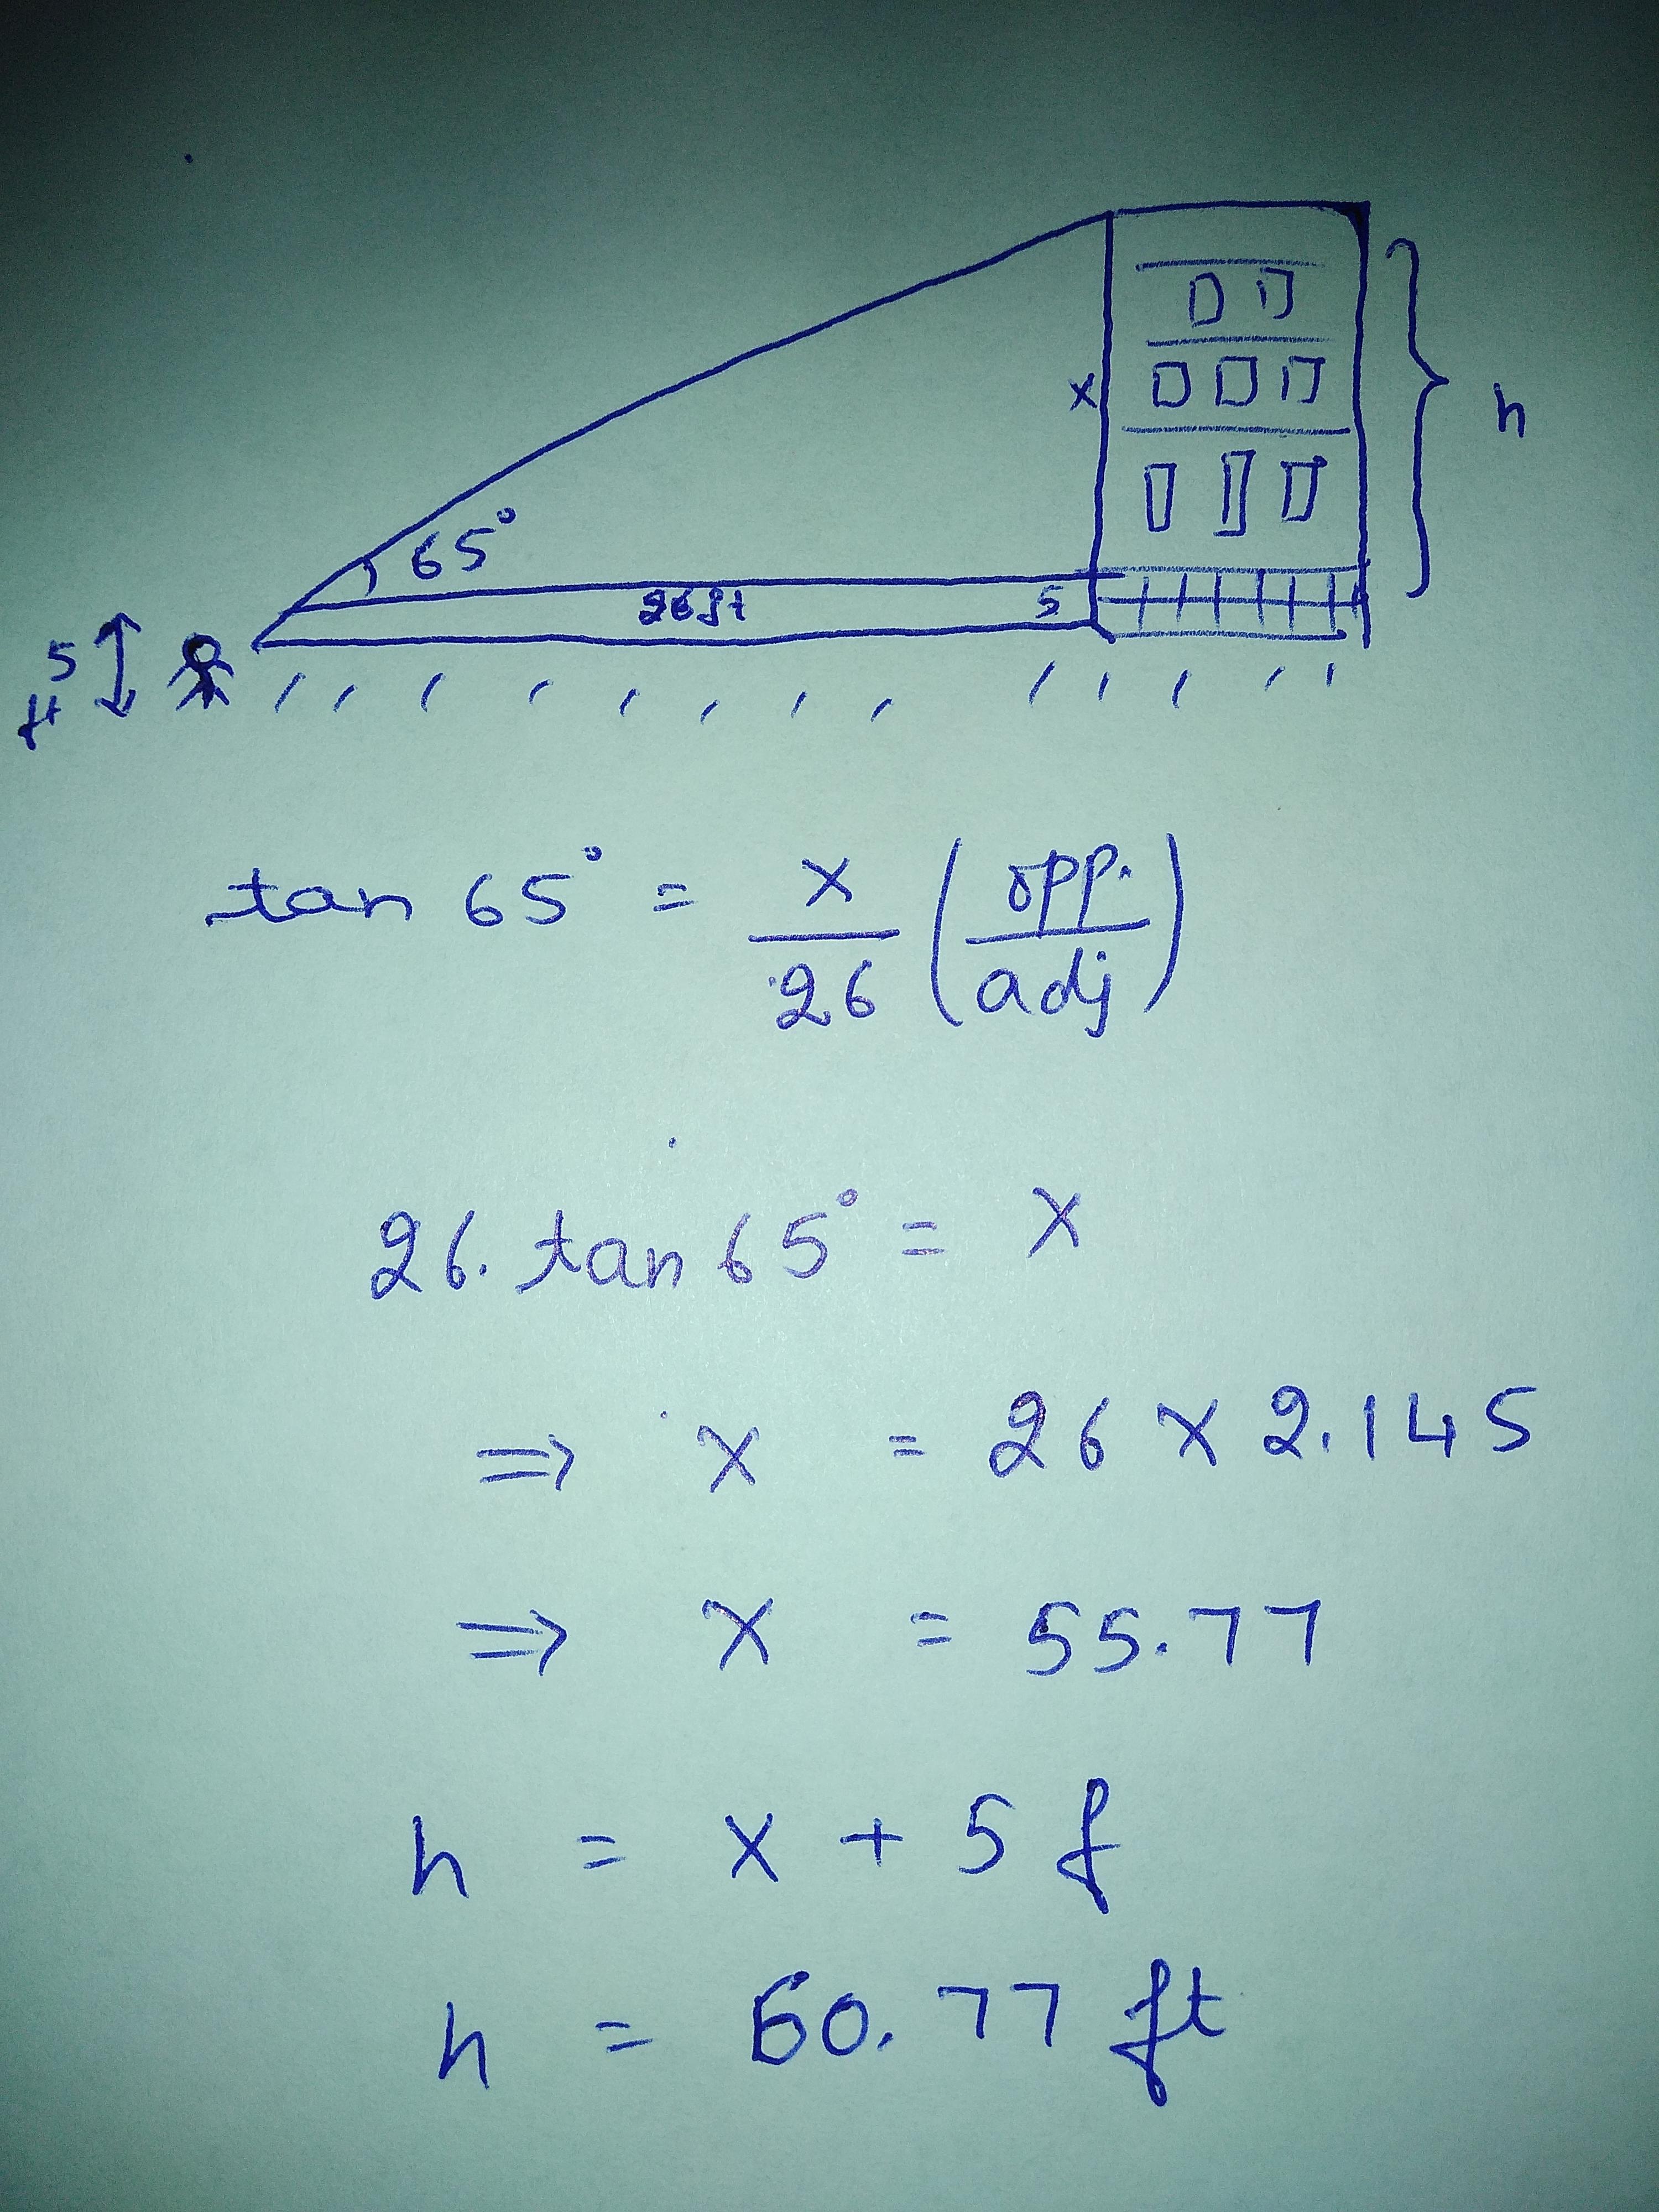 x
h
65°
26 ft
5
5
ft
tan 65° = x/26 (opp./adj)
26. tan 65° = x
⇒ x = 26 x 2.145
⇒ x = 55.77
h = x + 5 f
h = 60.77 ft